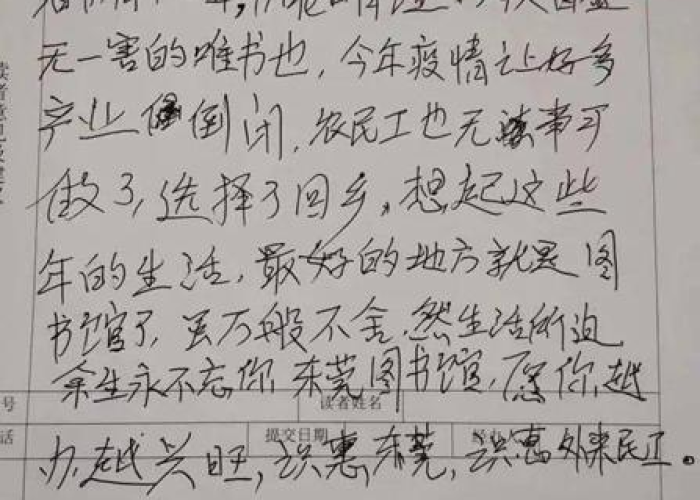 无一害的唯书也,今年疫情让好多
产业倒闭,农民工也无事可
做了,选择了回乡。想起这些
年的生活,最好的地方就是图
书馆了,虽万般不舍,然生活所迫
余生永不忘你,东莞图书馆,愿你越
号 读者姓名
办越兴旺,识惠东莞,识惠外来民工。
话 提交日期 经办人